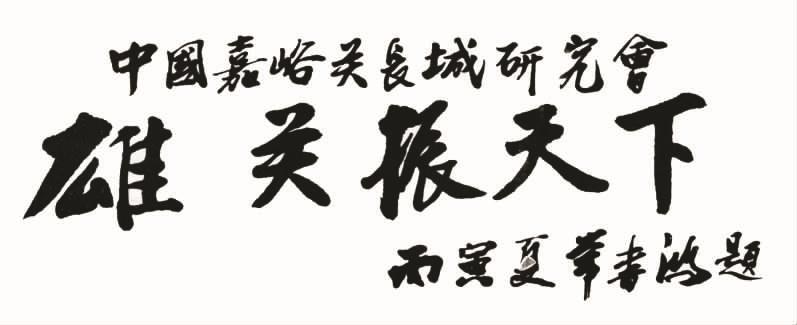 中國嘉峪关長城硏究會
雄关振天下
丙寅夏華書鴻題